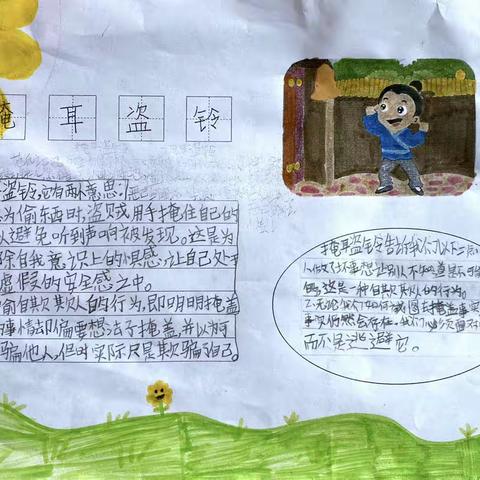 掩耳盗铃
盗铃,它有两个意思:
为偷东西时,盗贼用手掩住自己的
以避免听到声响被发现。这是为
除自我意识上的惧感,让自己处于
虚假的安全感之中。
偷自欺欺人的行为,即明明掩盖
的事情却偏要想法子掩盖,并以为可
骗他人,但时实际只是欺骗自己。
掩耳盗铃告诉我们以下二点
人做了坏事想让别人不知道是不可能
的,这是一种自欺欺人的行为。
2.无论我们如何试图去掩盖事实
事实仍然会存在。我们必须面对
而不是逃避它。